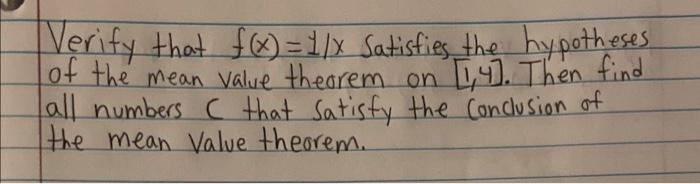 Verify that f(x)=1/x satisfies the hypotheses
of the mean value theorem on [1,4]. Then find
all numbers C that satisfy the conclusion of
the mean value theorem.